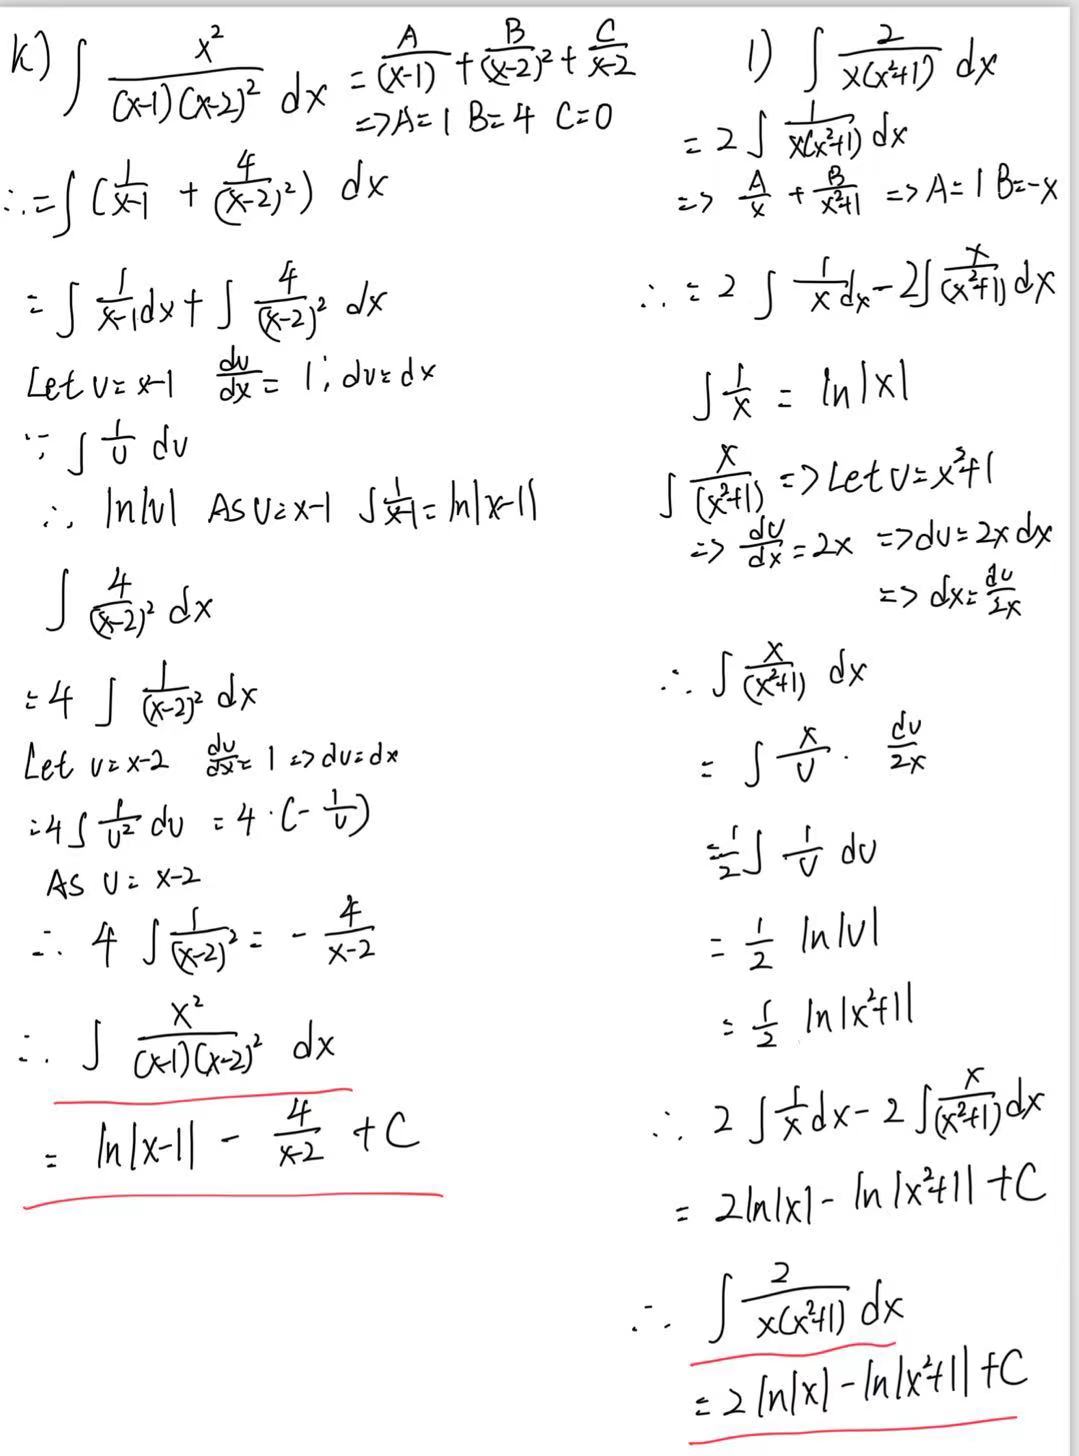 k) ∫ x²/((x-1)(x-2)²) dx = A/(x-1) + B/(x-2)² + C/(x-2)
=> A=1 B=4 C=0
∴ = ∫ (1/(x-1) + 4/(x-2)²) dx
= ∫ 1/(x-1) dx + ∫ 4/(x-2)² dx
Let u = x-1 du/dx = 1; du = dx
∵ ∫ 1/u du
∴ ln|u| As u = x-1 ∫ 1/(x-1) = ln|x-1|
∫ 4/(x-2)² dx
= 4 ∫ 1/(x-2)² dx
Let u = x-2 du/dx = 1 => du = dx
= 4 ∫ 1/u² du = 4 · (- 1/u)
As u = x-2
∴ 4 ∫ 1/(x-2)² = - 4/(x-2)
∴ ∫ x²/((x-1)(x-2)²) dx
= ln|x-1| - 4/(x-2) + C
l) ∫ 2/(x(x²+1)) dx
= 2 ∫ 1/(x(x²+1)) dx
=> A/x + B/(x²+1) => A=1 B=-x
∴ = 2 ∫ 1/x dx - 2∫ x/(x²+1) dx
∫ 1/x = ln|x|
∫ x/(x²+1) => Let u = x²+1
=> du/dx = 2x => du = 2x dx
=> dx = du/2x
∴ ∫ x/(x²+1) dx
= ∫ x/u · du/2x
= 1/2 ∫ 1/u du
= 1/2 ln|u|
= 1/2 ln|x²+1|
∴ 2 ∫ 1/x dx - 2 ∫ x/(x²+1) dx
= 2ln|x| - ln|x²+1| + C
∴ ∫ 2/(x(x²+1)) dx
= 2 ln|x| - ln|x²+1| + C